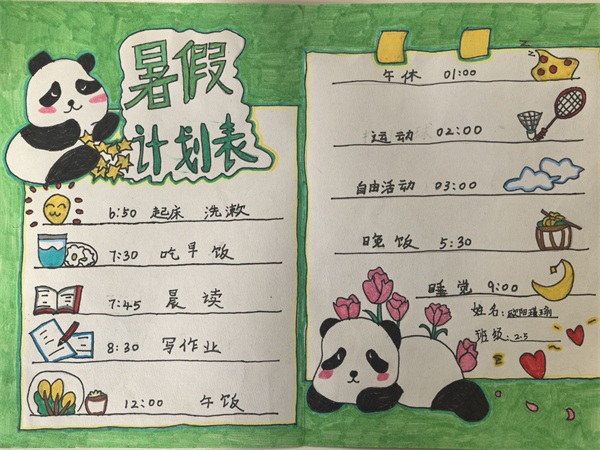 暑假
计划表
6:50 起床 洗漱
7:30 吃早饭
7:45 晨读
8:30 写作业
12:00 午饭
午休 01:00
运动 02:00
自由活动 03:00
晚饭 5:30
睡觉 9:00
姓名:欧阳
班级:2.5